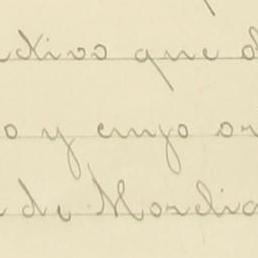 ctivo que d
o y cuyo or
a de Mordia